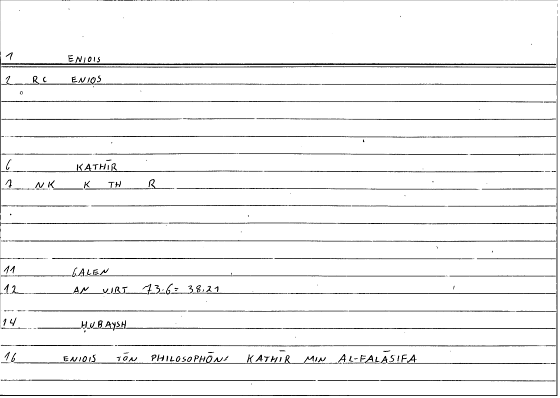 1 ENIOIS
2 RC ENIOS
6 KATHĪR
7 NK K TH R
11 GALEN
12 AN VIRT 73.6 = 38.21
14 ḤUBAYSH
16 ENIOIS TŌN PHILOSOPHŌN: KATHĪR MIN AL-FALĀSIFA